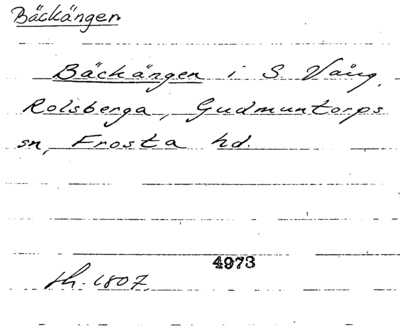 Bäckängen
Bäckängen i S. Vång,
Rolsberga, Gudmuntorps
sn, Frosta hd.
4973
sh. 1807.